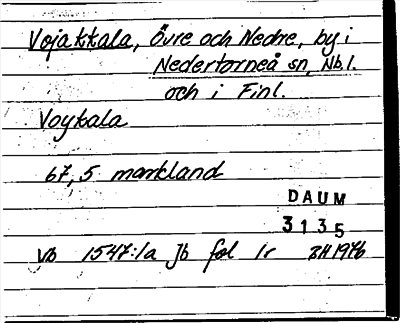 Vojakkala, Övre och Nedre, by i
Nedertorneå sn, Nb l.
och i Finl.
Voykala
67,5 markland
DAUM
3135
Vb 1547:1a Jb fol 1r BH1976